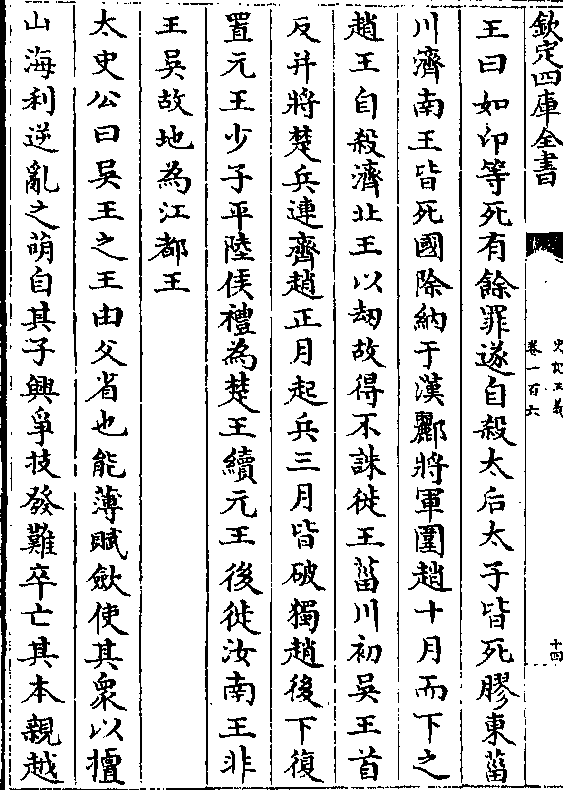 欽定四庫全書
史記正義
卷一百六
十四
王曰如卬等死有餘罪遂自殺太后太子皆死膠東菑
川濟南王皆死國除納于漢酈將軍圍趙十月而下之
趙王自殺濟北王以劫故得不誅徙王菑川初吳王首
反并將楚兵連齊趙正月起兵三月皆破獨趙後下復
置元王少子平陸侯禮為楚王續元王後徙汝南王非
王吳故地為江都王
太史公曰吳王之王由父省也能薄賦斂使其衆以擅
山海利逆亂之萌自其子興爭技發難卒亡其本親越